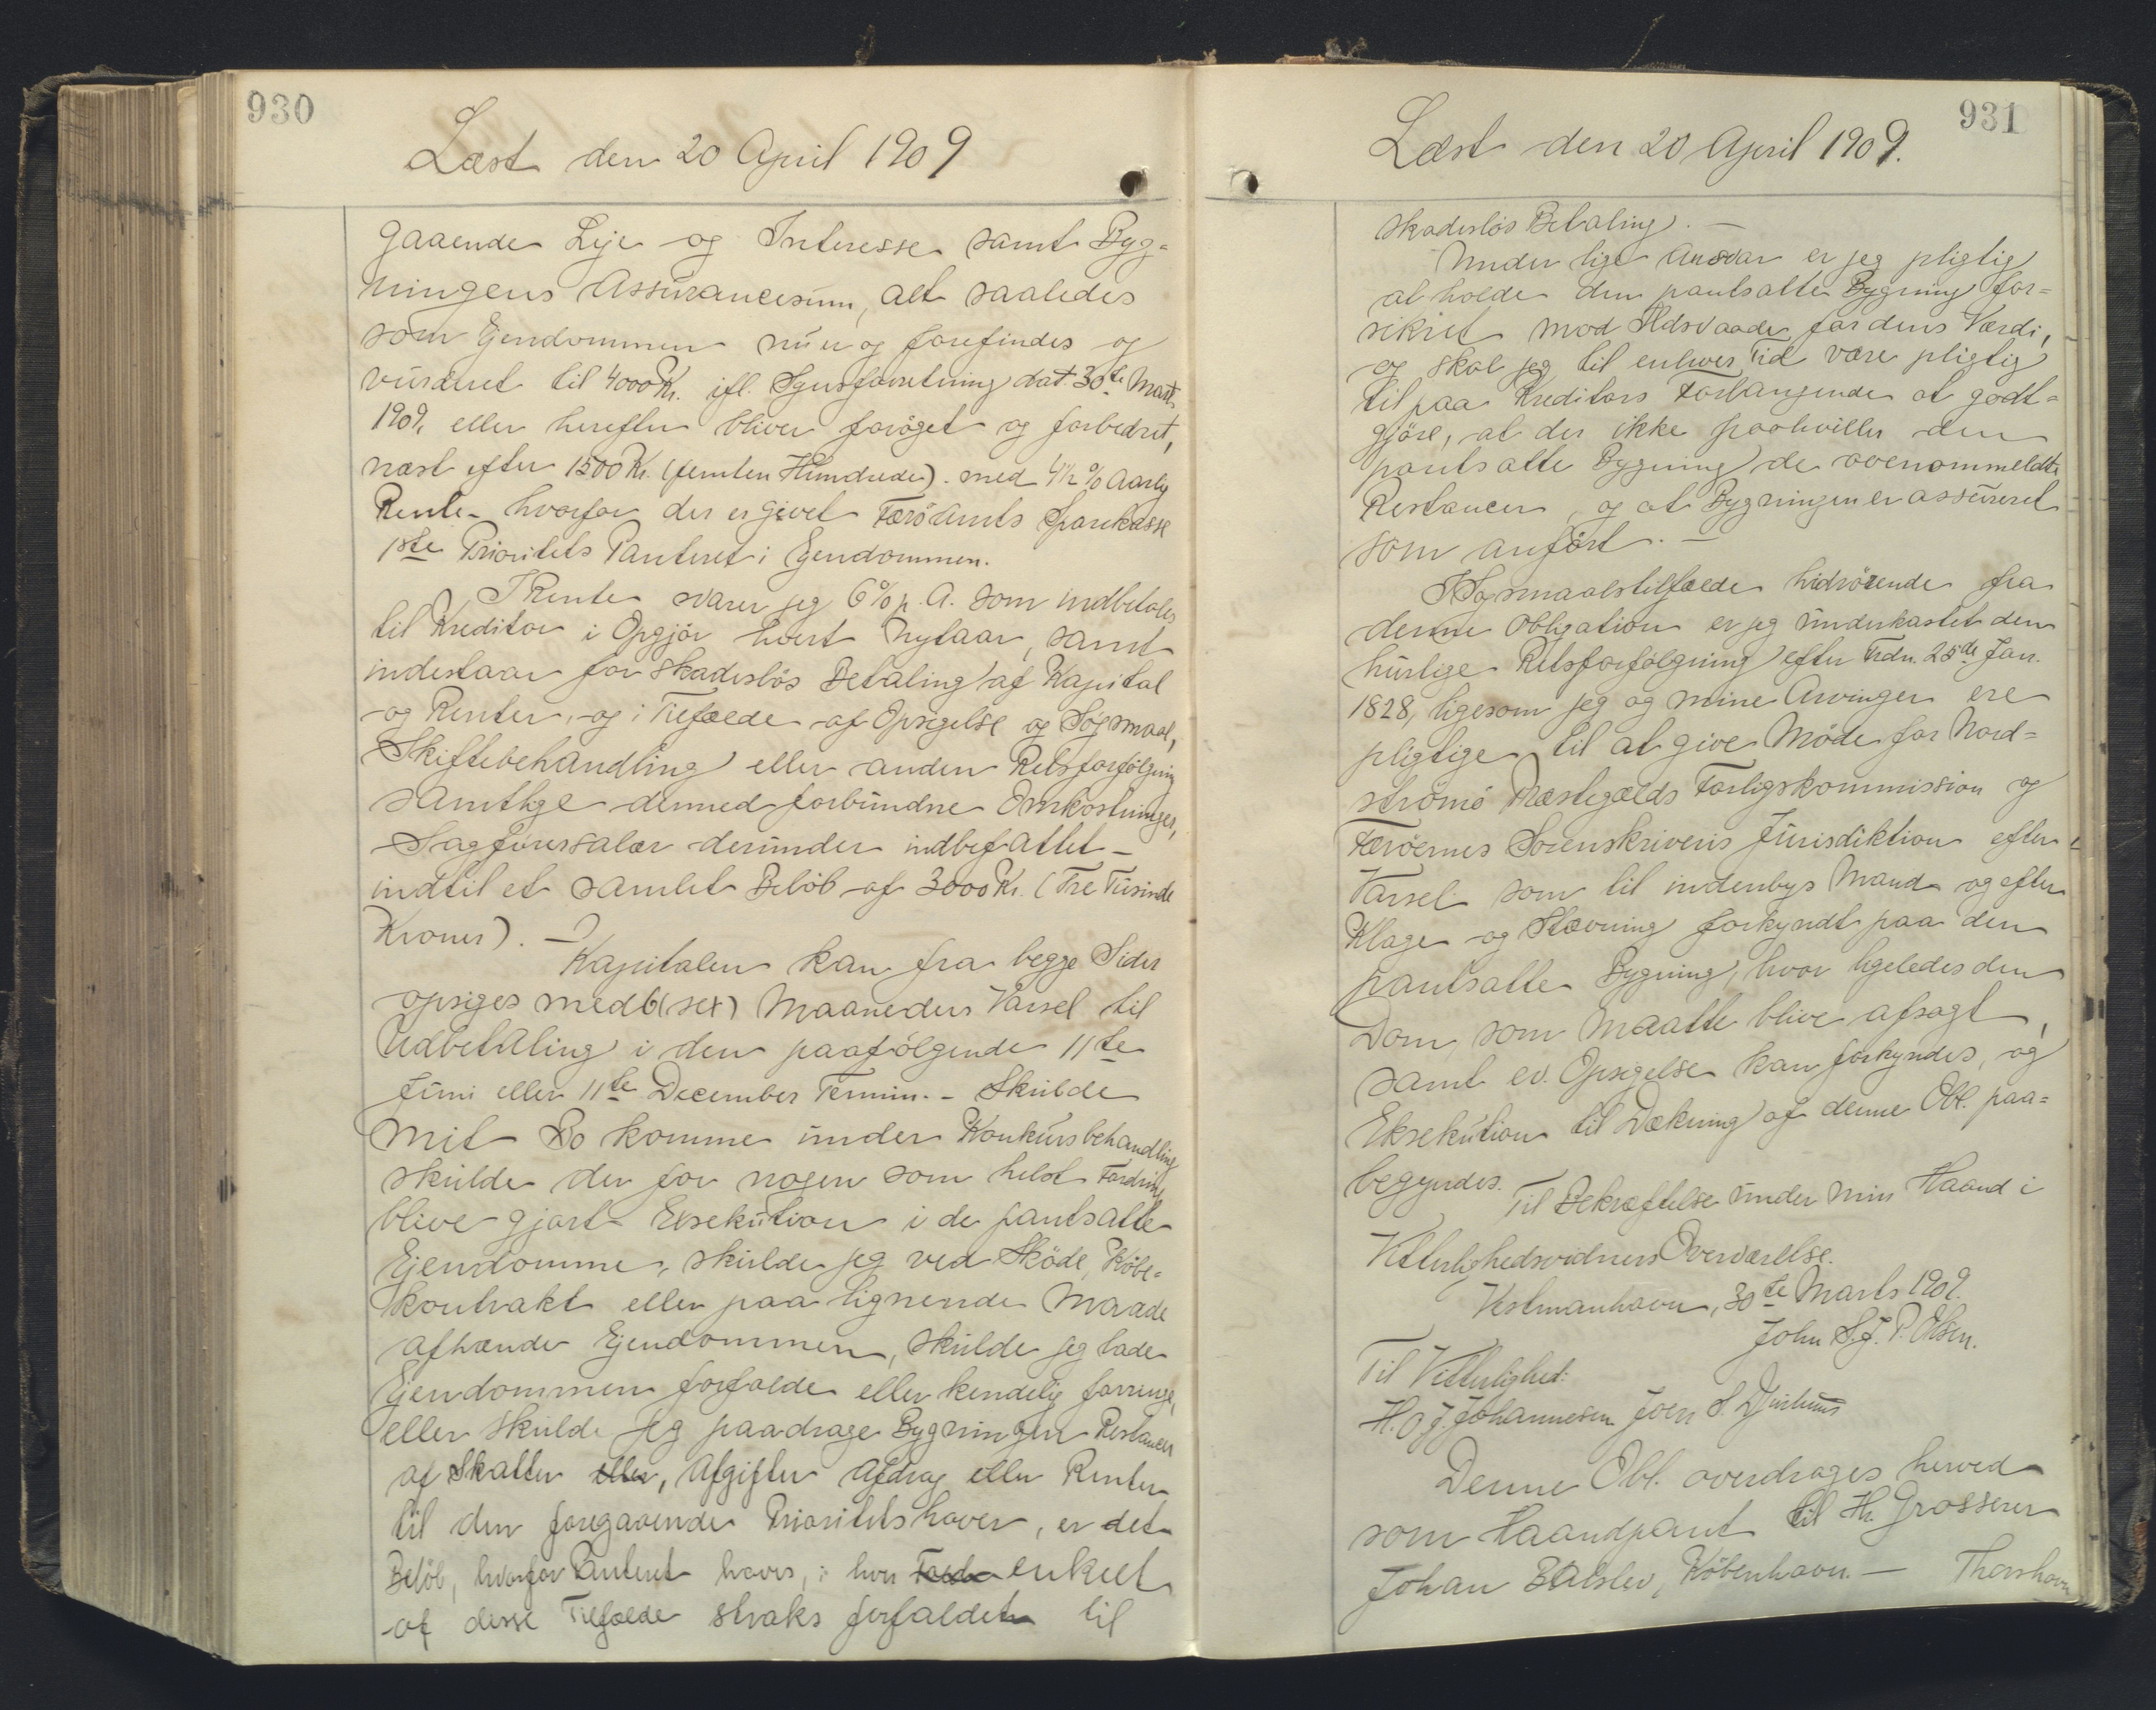 930
Læst den 20 April 1909
gaaende Leje og Interesse samt Byg-
ningens Assurancesum, alt saaledes
som Ejendommen nu er og forefindes og
vurderet til 4000 Kr. ifl. Synsforretning dat. 30te Marts
1909, eller herefter bliver forøget og forbedret,
næst efter 1500 Kr. (femten Hundrede). med 4½ % aarlig
Rente - hvorfor der er givet Færø Amts Sparekasse
1ste Prioritets Panteret i Ejendommen.
I Rente svarer jeg 6% p. A. som indbetales
til Kreditor i Opgjør hvert Nytaar, samt
indestaar for skadesløs Betaling af Kapital
og Renter, og i Tilfælde af Opsigelse og Søgsmaal,
Skiftebehandling eller anden Retsforfølgning
samtlige dermed forbundne Omkostninger,
Sagførersalær derunder indbefattet -
indtil et samlet Beløb af 3000 Kr. (Tre Tusinde
Kroner). -
Kapitalen kan fra begge Sider
opsiges med 6 (sex) Maaneders Varsel til
Udbetaling i den paafølgende 11te
Juni eller 11te December Termin. - Skulde
mit Bo komme under Konkursbehandling
skulde der for nogen som helst Fordring
blive gjort Exsekution i de pantsatte
Ejendomme, skulde jeg ved Skøde, Købe-
kontrakt eller paa lignende Maade
afhænde Ejendommen, skulde jeg lade
Ejendommen forfalde eller kendelig forringe,
eller skulde jeg paadrage Bygningen Restancer
af Skatter eller, Afgifter Afdrag eller Renter
til den foregaaende Prioritetshaver, er det
Beløb, hvorfor Panteret haves, i hver enkelt
af disse Tilfælde straks forfaldet til
931
Læst den 20 April 1909.
skadesløs Betaling. -
Under lige Ansvar er jeg pligtig
at holde den pantsatte Bygning for-
sikret mod Ildsvaade for dens Værdi,
og skal jeg til enhver Tid være pligtig
til paa Kreditors Forlangende at godt-
gjøre, at der ikke paahviller den
pantsatte Bygning de ovenommeldte
Restancer, og at Bygningen er assureret
som anført. -
I Søgsmaalstilfælde hidrørende fra
denne Obligation er jeg underkastet den
hurtige Retsforfølgning efter Frdn. 25de Jan.
1828, ligesom jeg og mine Arvinger ere
pligtige til at give Møde for Nord-
strømø Præstegælds Forligskommission og
Færøernes Sorenskriveris Jurisdiktion efter
Varsel som til indenbys Mand og efter
Klage og Stævning forkyndt paa den
pantsatte Bygning, hvor ligeledes den
Dom, som maatte blive afsagt,
samt ev. Opsigelse kan forkyndes, og
Eksekution til Dækning af denne Obl. paa-
begyndes.
Til Bekræftelse under min Haand i
Vitterlighedsvidners Overværelse.
Vestmanhavn, 30te Marts 1909.
John S. J. P. Olsen.
Til Vitterlighed:
H. O. J. Johannesen Joen S. Djurhuus
Denne Obl. overdrages herved
som Haandpant til Hr. Grosserer
Johan Balslev, København. - Thorshavn